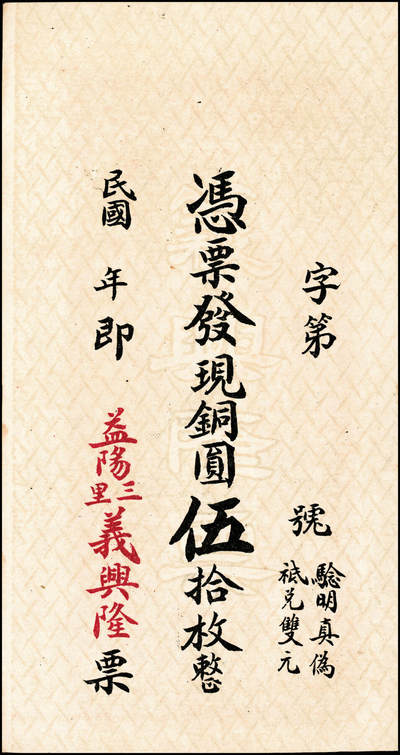 字第 號
驗明真偽
祗兑雙元
憑票發現銅圓伍拾枚整
民國 年 即
益陽三里義興隆票
義興隆